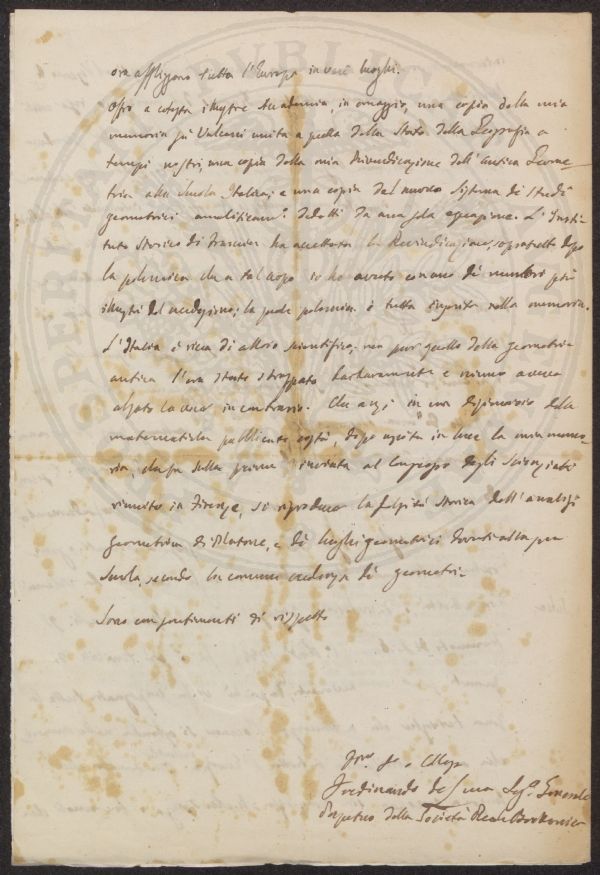 ora affliggono tutta l'Europa in varî luoghi.
Offro a cotesta illustre Accademia, in omaggio, una copia della mia
memoria su' Vulcani unita a quella dello Stato della Geografia a'
tempi nostri, una copia della mia Rivendicazione dell'antica Geome-
tria alla Scuola Italica; e una copia del nuovo sistema di Studî
geometrici analiticam.e dedotti da una sola equazione. L'Insti-
tuto Storico di Francia ha accettata la Rivendicazione, soprattutto dopo
la polemica che a tal uopo io ho avuto con uno de' membri più
illustri del medesimo; la quale polemica è tutta inserita nella memoria.
L'Italia è ricca di alloro scientifico, ma pur quello della geometria
antica l'era stato strappato barbaramente e niuno aveva
alzato la voce in contrario. Che anzi in un dizionario delle
matematiche pubblicato costà, dopo uscita in luce la mia memo-
ria, sulla prima inviata al Congresso degli Scienziati
riunito in Firenze, si riproduce la falsità storica dell'analisi
geometrica di Platone, e de' luoghi geometrici dovuti alla sua
Scuola, secondo la comune credenza de' geometri.
Sono con sentimenti di rispetto
Ferdinando de Luca Seg.o Generale
Perpetuo della Società Reale Borbonica